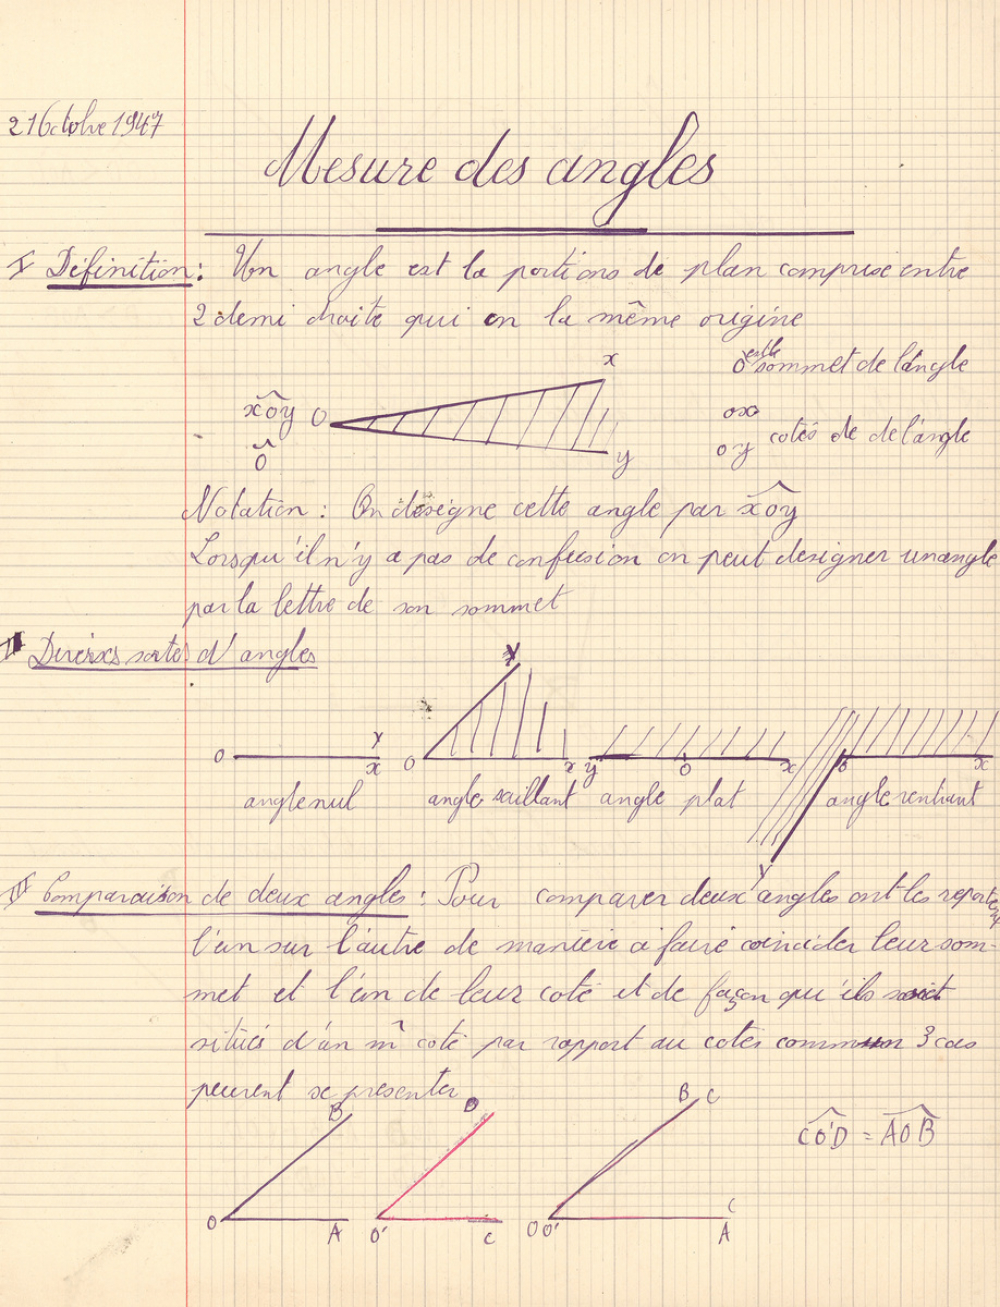 21 Octobre 1947
Mesure des angles
I Définition : Un angle est la portions de plan comprise entre
2 demi droite qui on la même origine
x
O est le sommet de l'angle
xoy O
ox
oy cotés de de l'angle
O
y
Notation : On désigne cette angle par xoy
Lorsqu'il n'y a pas de confusion on peut designer un angle
par la lettre de son sommet
II Diverses sortes d'angles
y
o y x o x y o x o x
angle nul angle saillant angle plat angle rentrant
y
III Comparaison de deux angles : Pour comparer deux angles ont les reporte
l'un sur l'autre de manière a faire coincider leur som-
met et l'un de leur coté et de façon qu'ils soit
situés d'un m̂ coté par rapport au cotés commun 3 cas
peuvent se presenter
B D B C
CO'D = AOB
O A O' C O O' C A